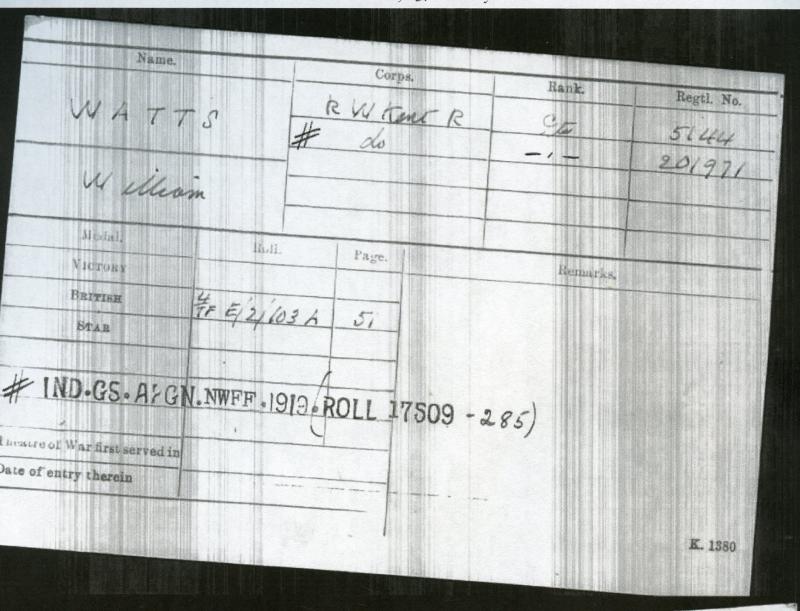 Name. Corps. Rank. Regtl. No.
WATTS R W Kent R 5144
# do -,- 201971
William
Medal. Roll. Page. Remarks.
VICTORY
BRITISH 4/TF E/2/103A 51
STAR
# IND.GS.AFGN.NWFF.1919.(ROLL 17509 - 285)
Theatre of War first served in
Date of entry therein
K. 1380